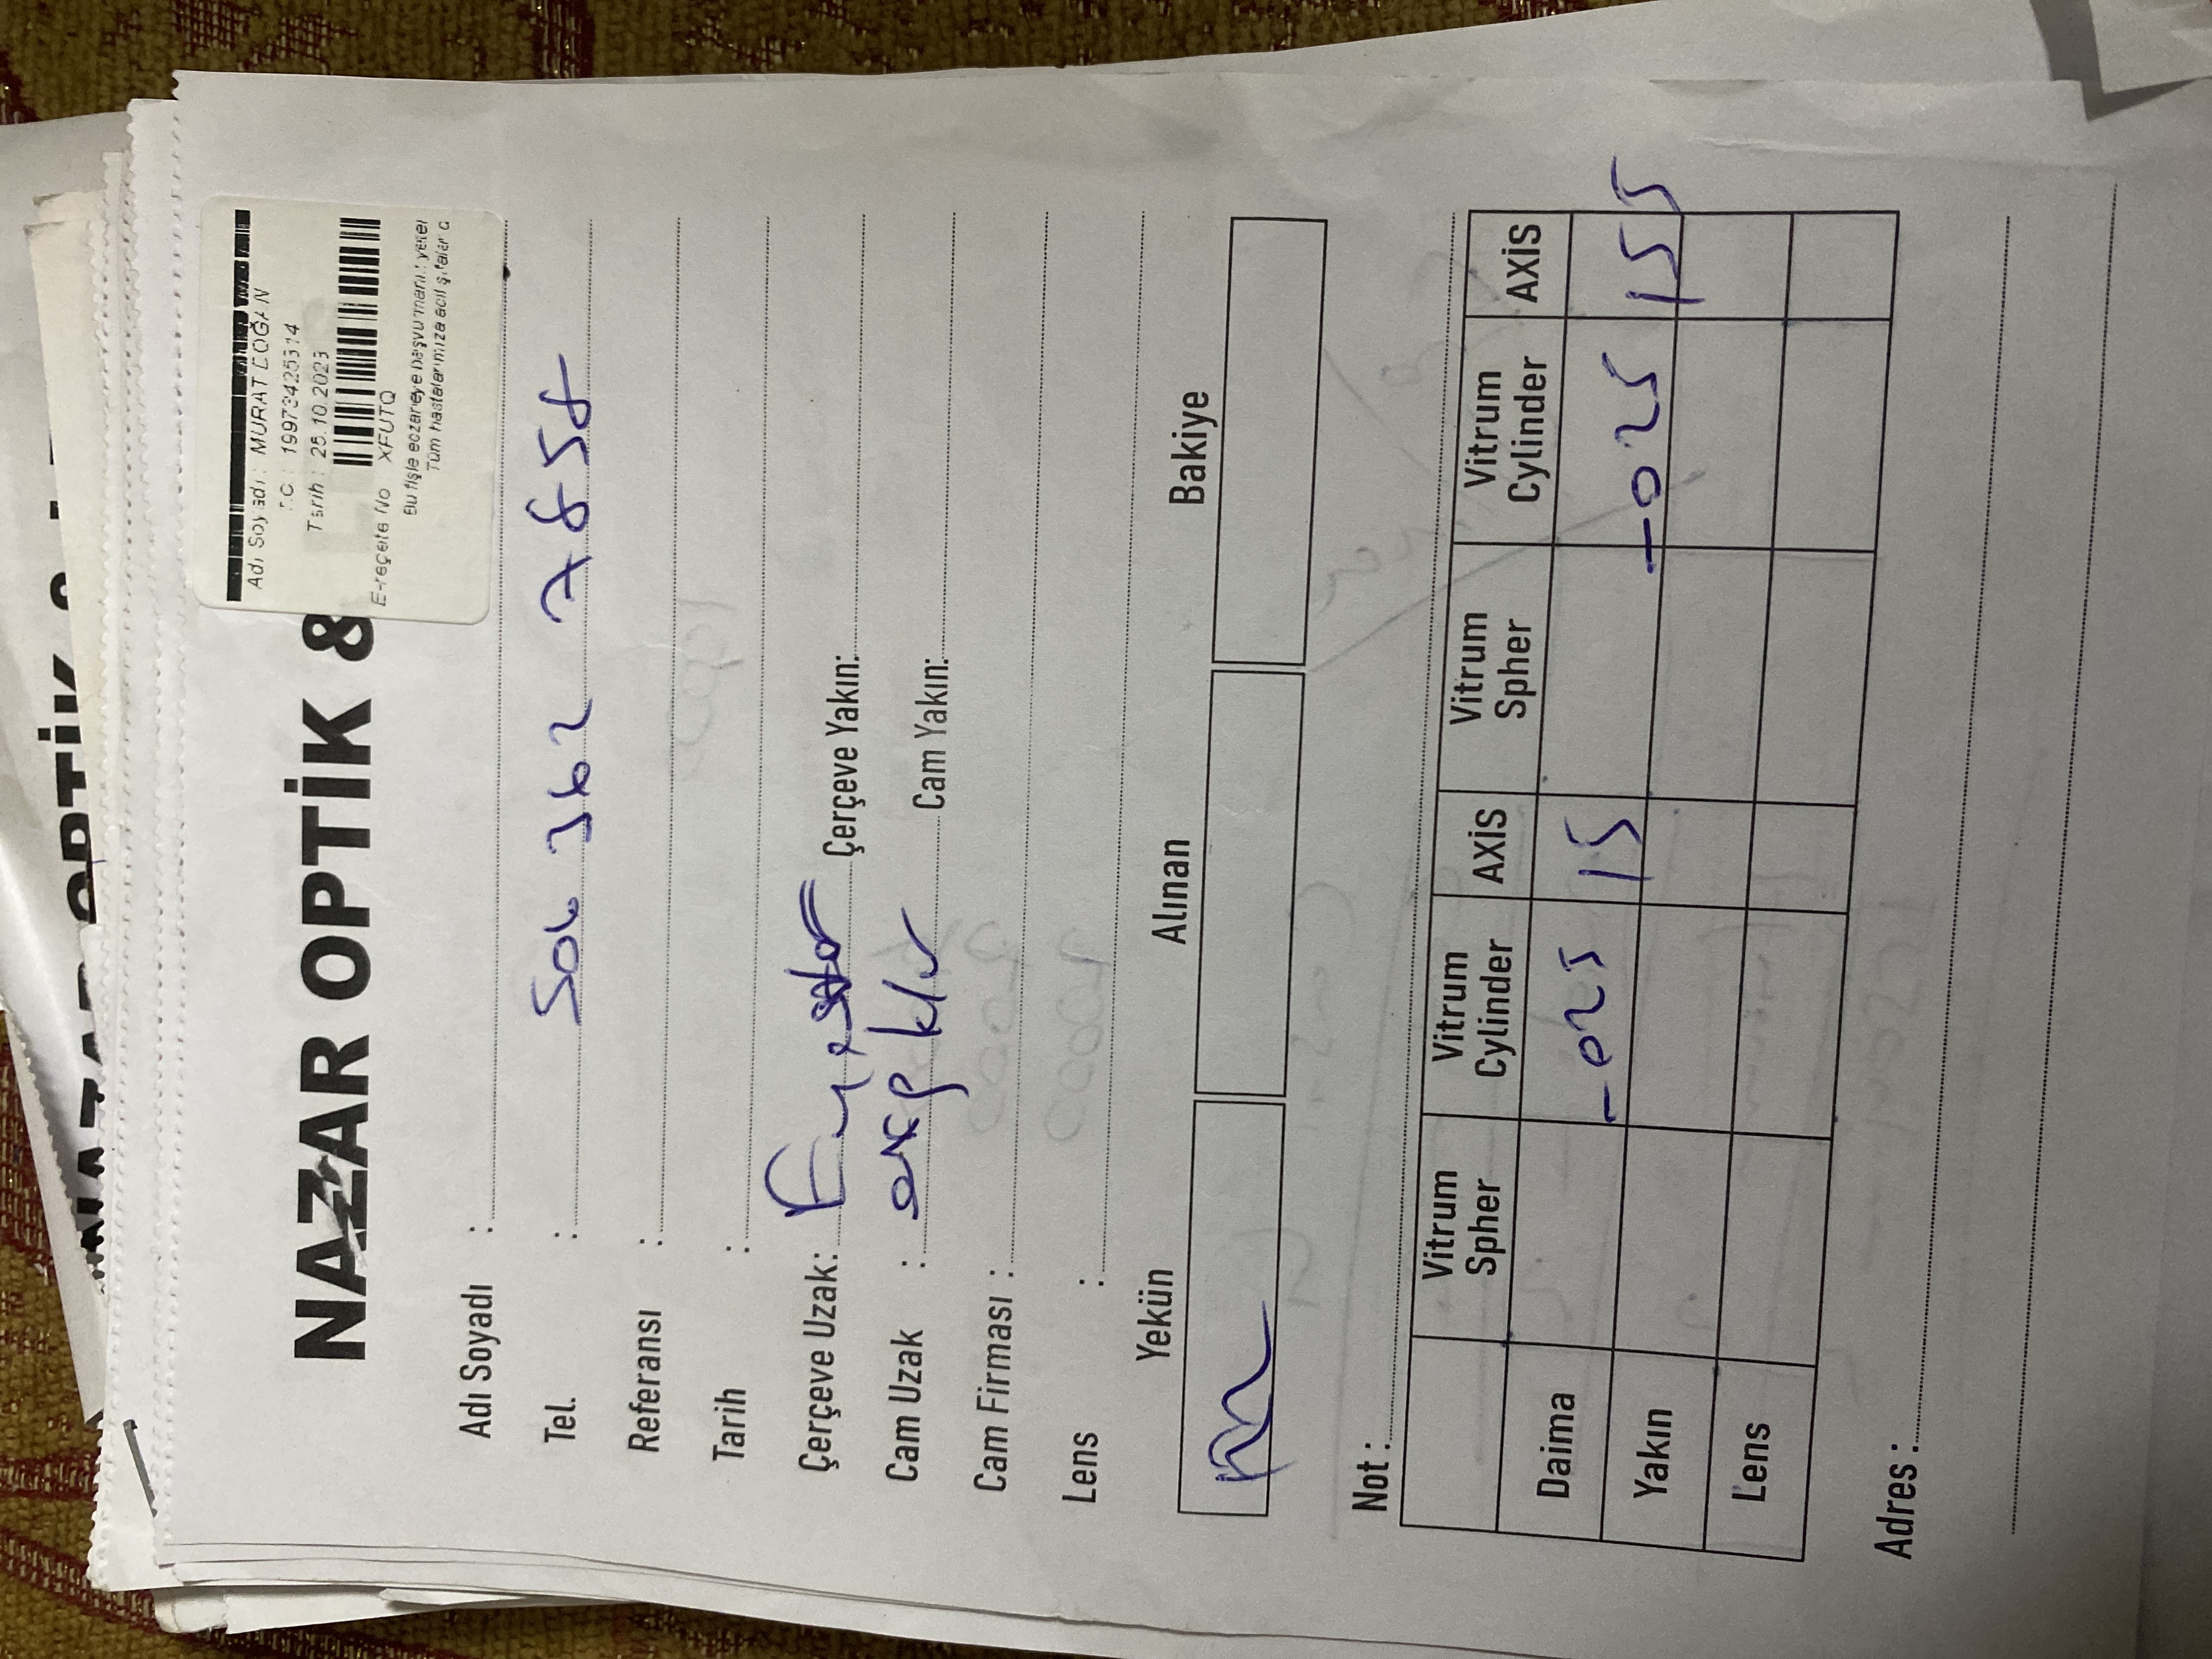 NAZAR OPTİK &
NAZAR OPTİK &
Adı Soyadı : MURAT DOĞAN
T.C : 19973425314
Tarih : 25.10.2023
E-reçete No XFUTQ
Bu fişle eczaneye başvurmanız yeter
Tüm hastalarımıza acil şifalar d
Adı Soyadı :
Tel. : 506 362 7858
Referansı :
Tarih :
Çerçeve Uzak: Çerçeve Yakın:
Cam Uzak : Cam Yakın:
Cam Firması :
Lens :
Yekün Alınan Bakiye
Not :
Vitrum Spher Vitrum Cylinder AXİS Vitrum Spher Vitrum Cylinder AXİS
Daima -025 15 -025 155
Yakın
Lens
Adres :